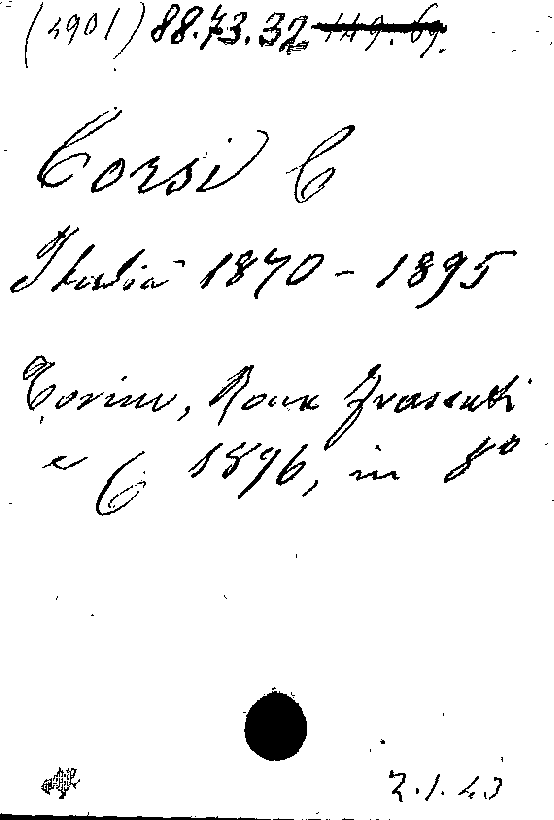 (1901) 88.73.32 149.69.
Corsi C
Italia 1870 - 1895
Torino, Roux Frassati
e C 1896, in 8º
2.1.43